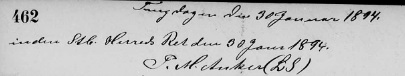 462
Tingdagen den 30 Januar 1894.
inden Stb. Herreds Ret den 30 Janr 1894.
P. M. Anker (LS)